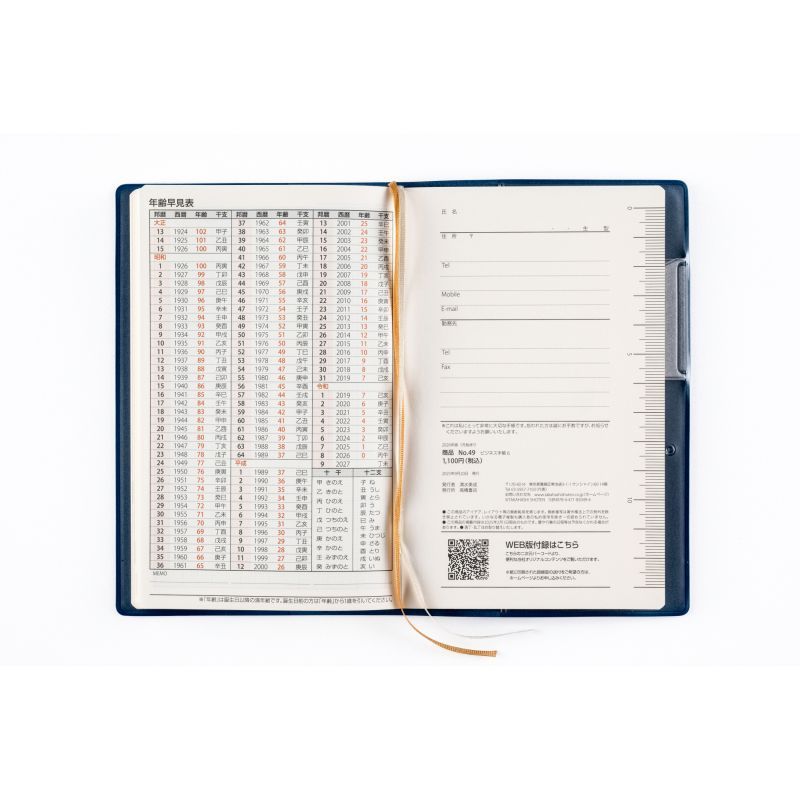 年齢早見表
邦暦 西暦 年齢 干支 邦暦 西暦 年齢 干支 邦暦 西暦 年齢 干支
大正 37 1962 64 壬寅 13 2001 25 辛巳
13 1924 102 甲子 38 1963 63 癸卯 14 2002 24 壬午
14 1925 101 乙丑 39 1964 62 甲辰 15 2003 23 癸未
15 1926 100 丙寅 40 1965 61 乙巳 16 2004 22 甲申
昭和 41 1966 60 丙午 17 2005 21 乙酉
1 1926 100 丙寅 42 1967 59 丁未 18 2006 20 丙戌
2 1927 99 丁卯 43 1968 58 戊申 19 2007 19 丁亥
3 1928 98 戊辰 44 1969 57 己酉 20 2008 18 戊子
4 1929 97 己巳 45 1970 56 庚戌 21 2009 17 己丑
5 1930 96 庚午 46 1971 55 辛亥 22 2010 16 庚寅
6 1931 95 辛未 47 1972 54 壬子 23 2011 15 辛卯
7 1932 94 壬申 48 1973 53 癸丑 24 2012 14 壬辰
8 1933 93 癸酉 49 1974 52 甲寅 25 2013 13 癸巳
9 1934 92 甲戌 50 1975 51 乙卯 26 2014 12 甲午
10 1935 91 乙亥 51 1976 50 丙辰 27 2015 11 乙未
11 1936 90 丙子 52 1977 49 丁巳 28 2016 10 丙申
12 1937 89 丁丑 53 1978 48 戊午 29 2017 9 丁酉
13 1938 88 戊寅 54 1979 47 己未 30 2018 8 戊戌
14 1939 87 己卯 55 1980 46 庚申 31 2019 7 己亥
15 1940 86 庚辰 56 1981 45 辛酉 令和
16 1941 85 辛巳 57 1982 44 壬戌 1 2019 7 己亥
17 1942 84 壬午 58 1983 43 癸亥 2 2020 6 庚子
18 1943 83 癸未 59 1984 42 甲子 3 2021 5 辛丑
19 1944 82 甲申 60 1985 41 乙丑 4 2022 4 壬寅
20 1945 81 乙酉 61 1986 40 丙寅 5 2023 3 癸卯
21 1946 80 丙戌 62 1987 39 丁卯 6 2024 2 甲辰
22 1947 79 丁亥 63 1988 38 戊辰 7 2025 1 乙巳
23 1948 78 戊子 64 1989 37 己巳 8 2026 0 丙午
24 1949 77 己丑 平成 9 2027 丁未
25 1950 76 庚寅 1 1989 37 己巳 十干 十二支
26 1951 75 辛卯 2 1990 36 庚午 甲 きのえ 子 ね
27 1952 74 壬辰 3 1991 35 辛未 乙 きのと 丑 うし
28 1953 73 癸巳 4 1992 34 壬申 丙 ひのえ 寅 とら
29 1954 72 甲午 5 1993 33 癸酉 丁 ひのと 卯 う
30 1955 71 乙未 6 1994 32 甲戌 戊 つちのえ 辰 たつ
31 1956 70 丙申 7 1995 31 乙亥 己 つちのと 巳 み
32 1957 69 丁酉 8 1996 30 丙子 庚 かのえ 午 うま
33 1958 68 戊戌 9 1997 29 丁丑 辛 かのと 未 ひつじ
34 1959 67 己亥 10 1998 28 戊寅 壬 みずのえ 申 さる
35 1960 66 庚子 11 1999 27 己卯 癸 みずのと 酉 とり
36 1961 65 辛丑 12 2000 26 庚辰 戌 いぬ 亥 い
MEMO
※「年齢」は誕生日以降の満年齢です。誕生日前の方は「年齢」から1歳を引いてください。
氏 名
・ ・ 生 型
住 所 〒
Tel
Mobile
E-mail
勤務先
Tel
Fax
※これは私にとって非常に大切な手帳です。拾われた方は誠にお手数ですが、お知らせ
くださいますようお願いいたします。
商品 No.49 ビジネス手帳 6
1,100円(税込)
発行所 高橋書店
WEB版付録はこちら
こちらの二次元バーコードより、
便利な当社オリジナルコンテンツをご覧いただけます。
ホームページよりお申込みください。
0
5
10